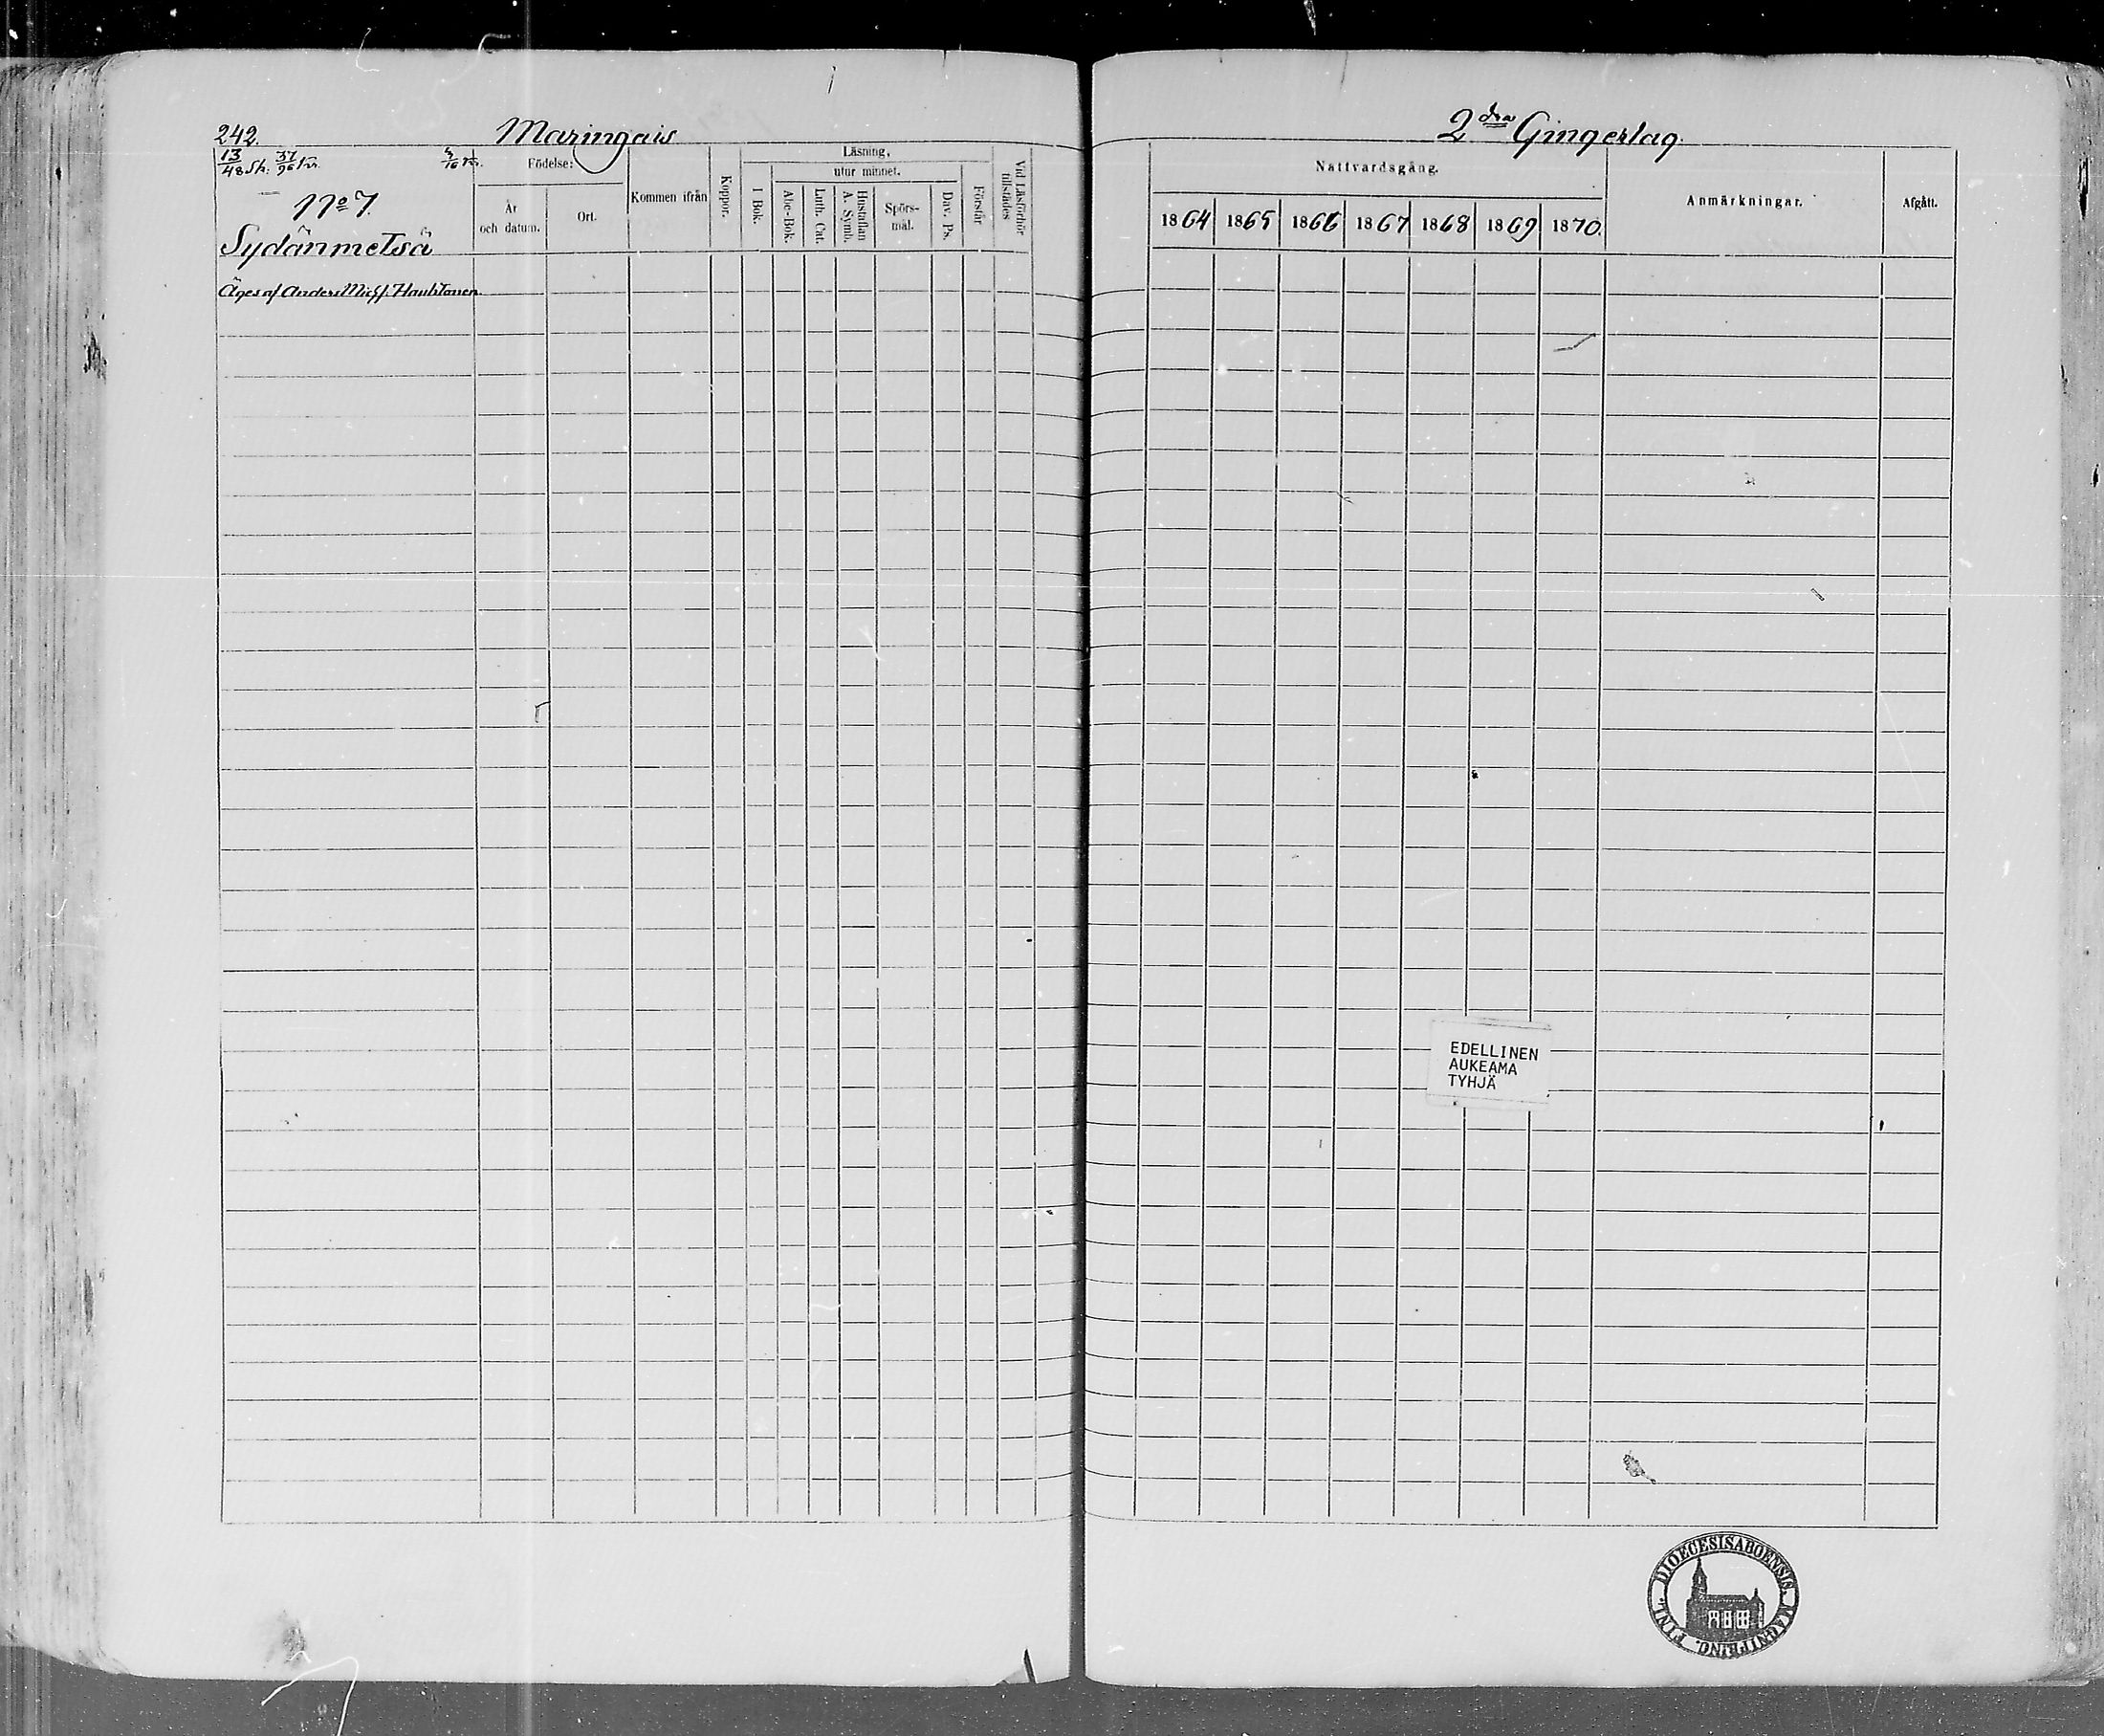 242.
Maringais
13/48 Sk. 37/96 kr.
Födelse:
Kommen ifrån
Koppor.
Läsning,
utur minnet.
År
och datum.
Ort.
I Bok.
Abc-Bok.
Luth. Cat.
Hustaflan
A. Symb.
Spörs-
mål.
Dav. Ps.
Förstår
Vid Läsförhör
tillstädes
No 7.
Sydänmetsä
Äges af Anders Michf. Hauhtonen
2dra Gingerlag.
Nattvardsgång.
Anmärkningar.
Afgått.
1864 1865 1866 1867 1868 1869 1870.
EDELLINEN
AUKEAMA
TYHJÄ
DIOECESIS ABOENSIS. MAGNI PRINC. FINL.